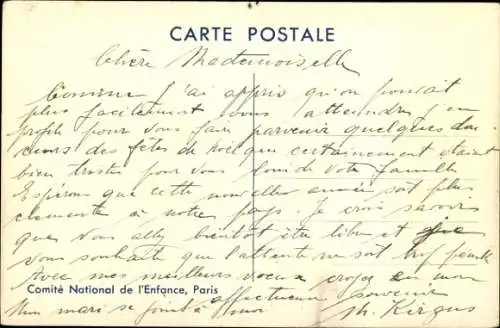 CARTE POSTALE
Chère Mademoiselle
Comme j'ai appris qu'on pouvait
plus facilement vous atteindre, j'en
profite pour vous faire parvenir quelques dou
ceurs des fêtes de Noël que certainement étaient
bien tristes pour vous loin de votre famille
Espérons que cette nouvelle année soit plus
clémente à notre pays. Je crois savoir
que vous allez bientôt être libre et
vous souhaite que l'attente ne soit trop pénible
Avec mes meilleurs voeux croyez en mon
Comité National de l'Enfance, Paris
affectueux souvenir
Mon mari se joint à moi. Th. Kirgus